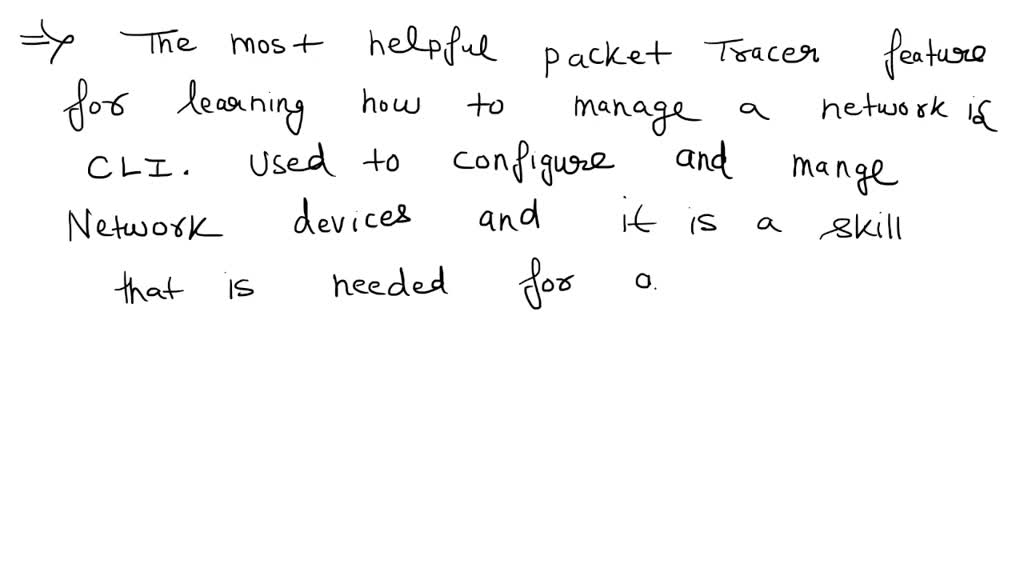 ⇒ The most helpful packet Tracer feature
for learning how to manage a network is
CLI. Used to configure and mange
Network devices and it is a skill
that is needed for a